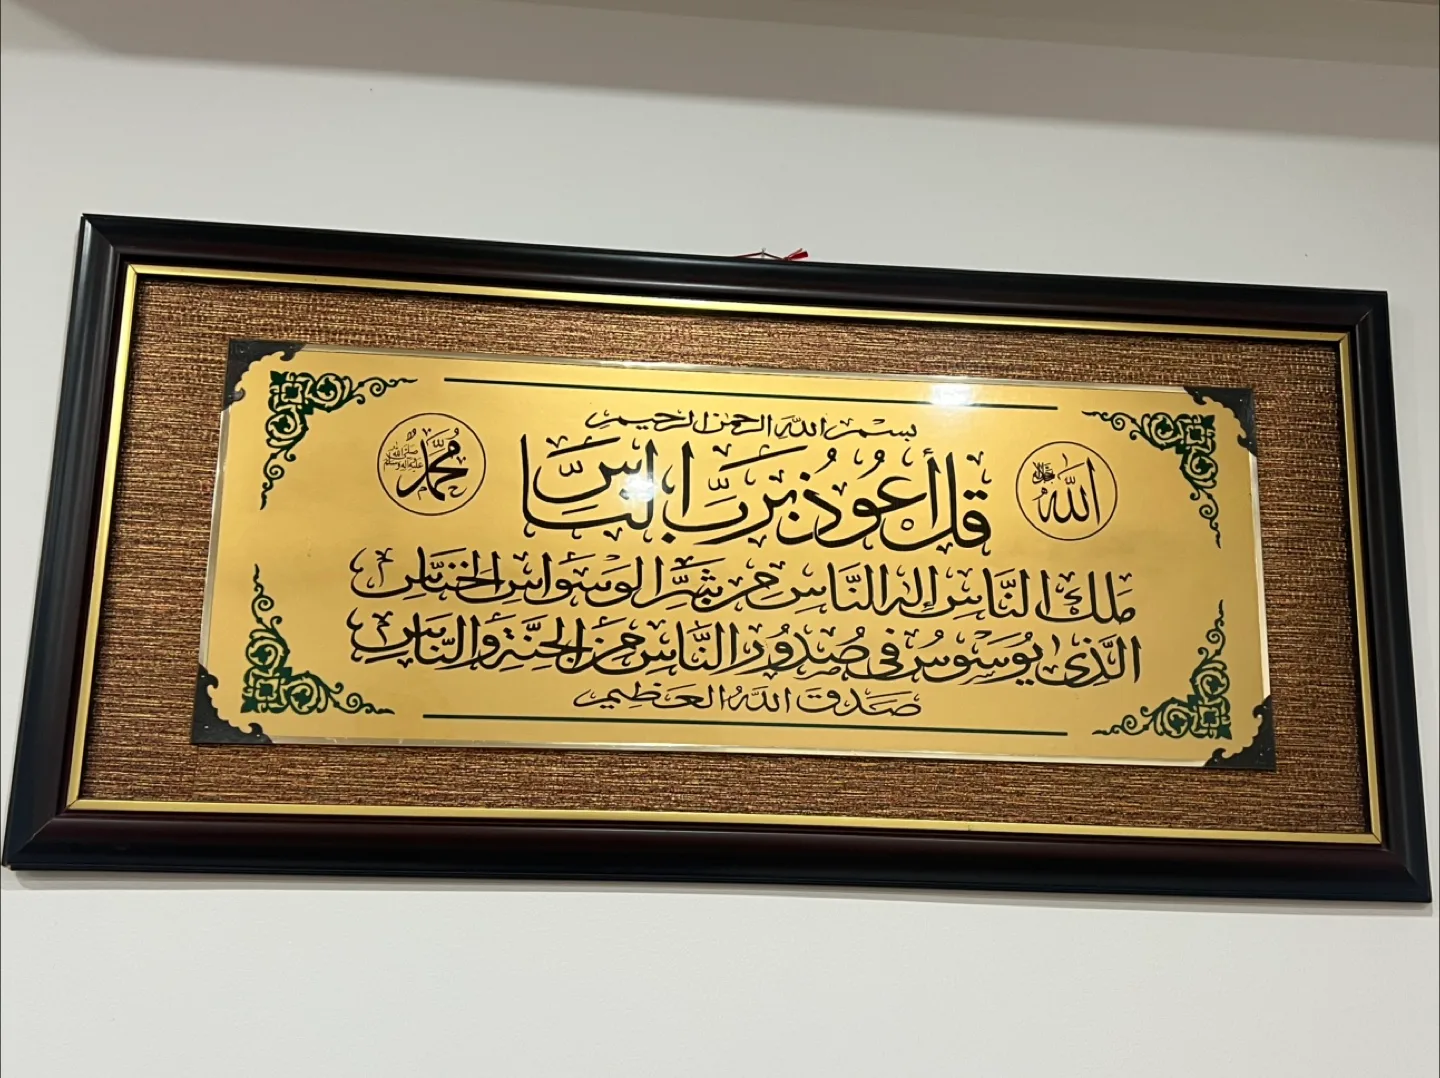 بسم الله الرحمن الرحيم
الله جل جلاله
قل أعوذ برب الناس
محمد صلى الله عليه وآله وسلم
ملك الناس إله الناس من شر الوسواس الخناس
الذي يوسوس في صدور الناس من الجنة والناس
صدق الله العظيم